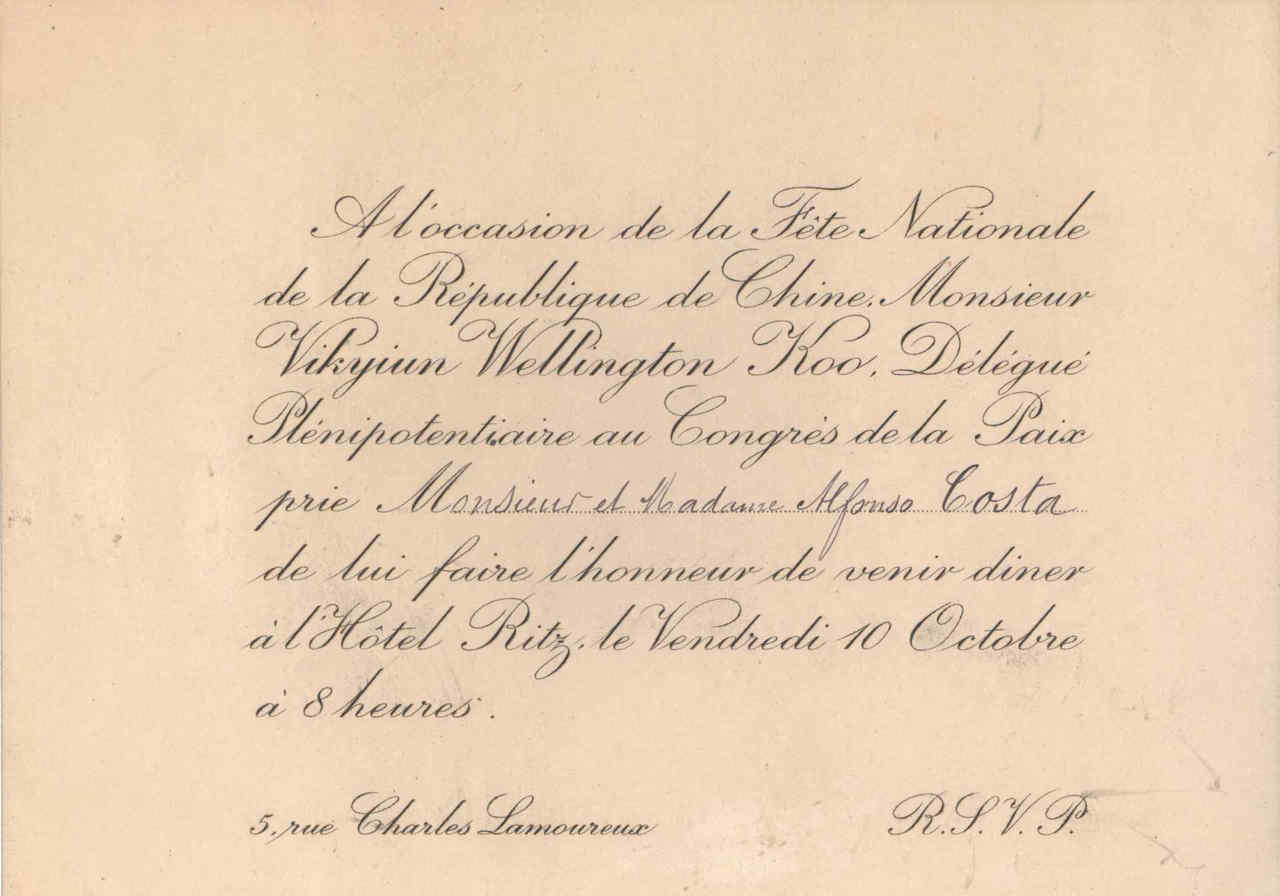 A l'occasion de la Fête Nationale
de la République de Chine, Monsieur
Vikyiun Wellington Koo, Délégué
Plénipotentiaire au Congrès de la Paix
prie Monsieur et Madame Alfonso Costa
de lui faire l'honneur de venir diner
à l'Hôtel Ritz, le Vendredi 10 Octobre
à 8 heures.
5, rue Charles Lamoureux R.S.V.P.